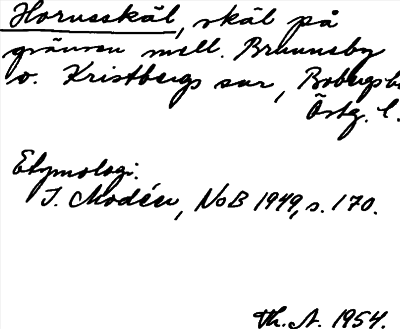 Horusskäl, skäl på
gränsen mell. Brunnsby
o. Kristbergs snr, Bobergs
Östg. l.
Etymologi:
I. Modéer, NoB 1949, s. 170.
Th. A. 1954.